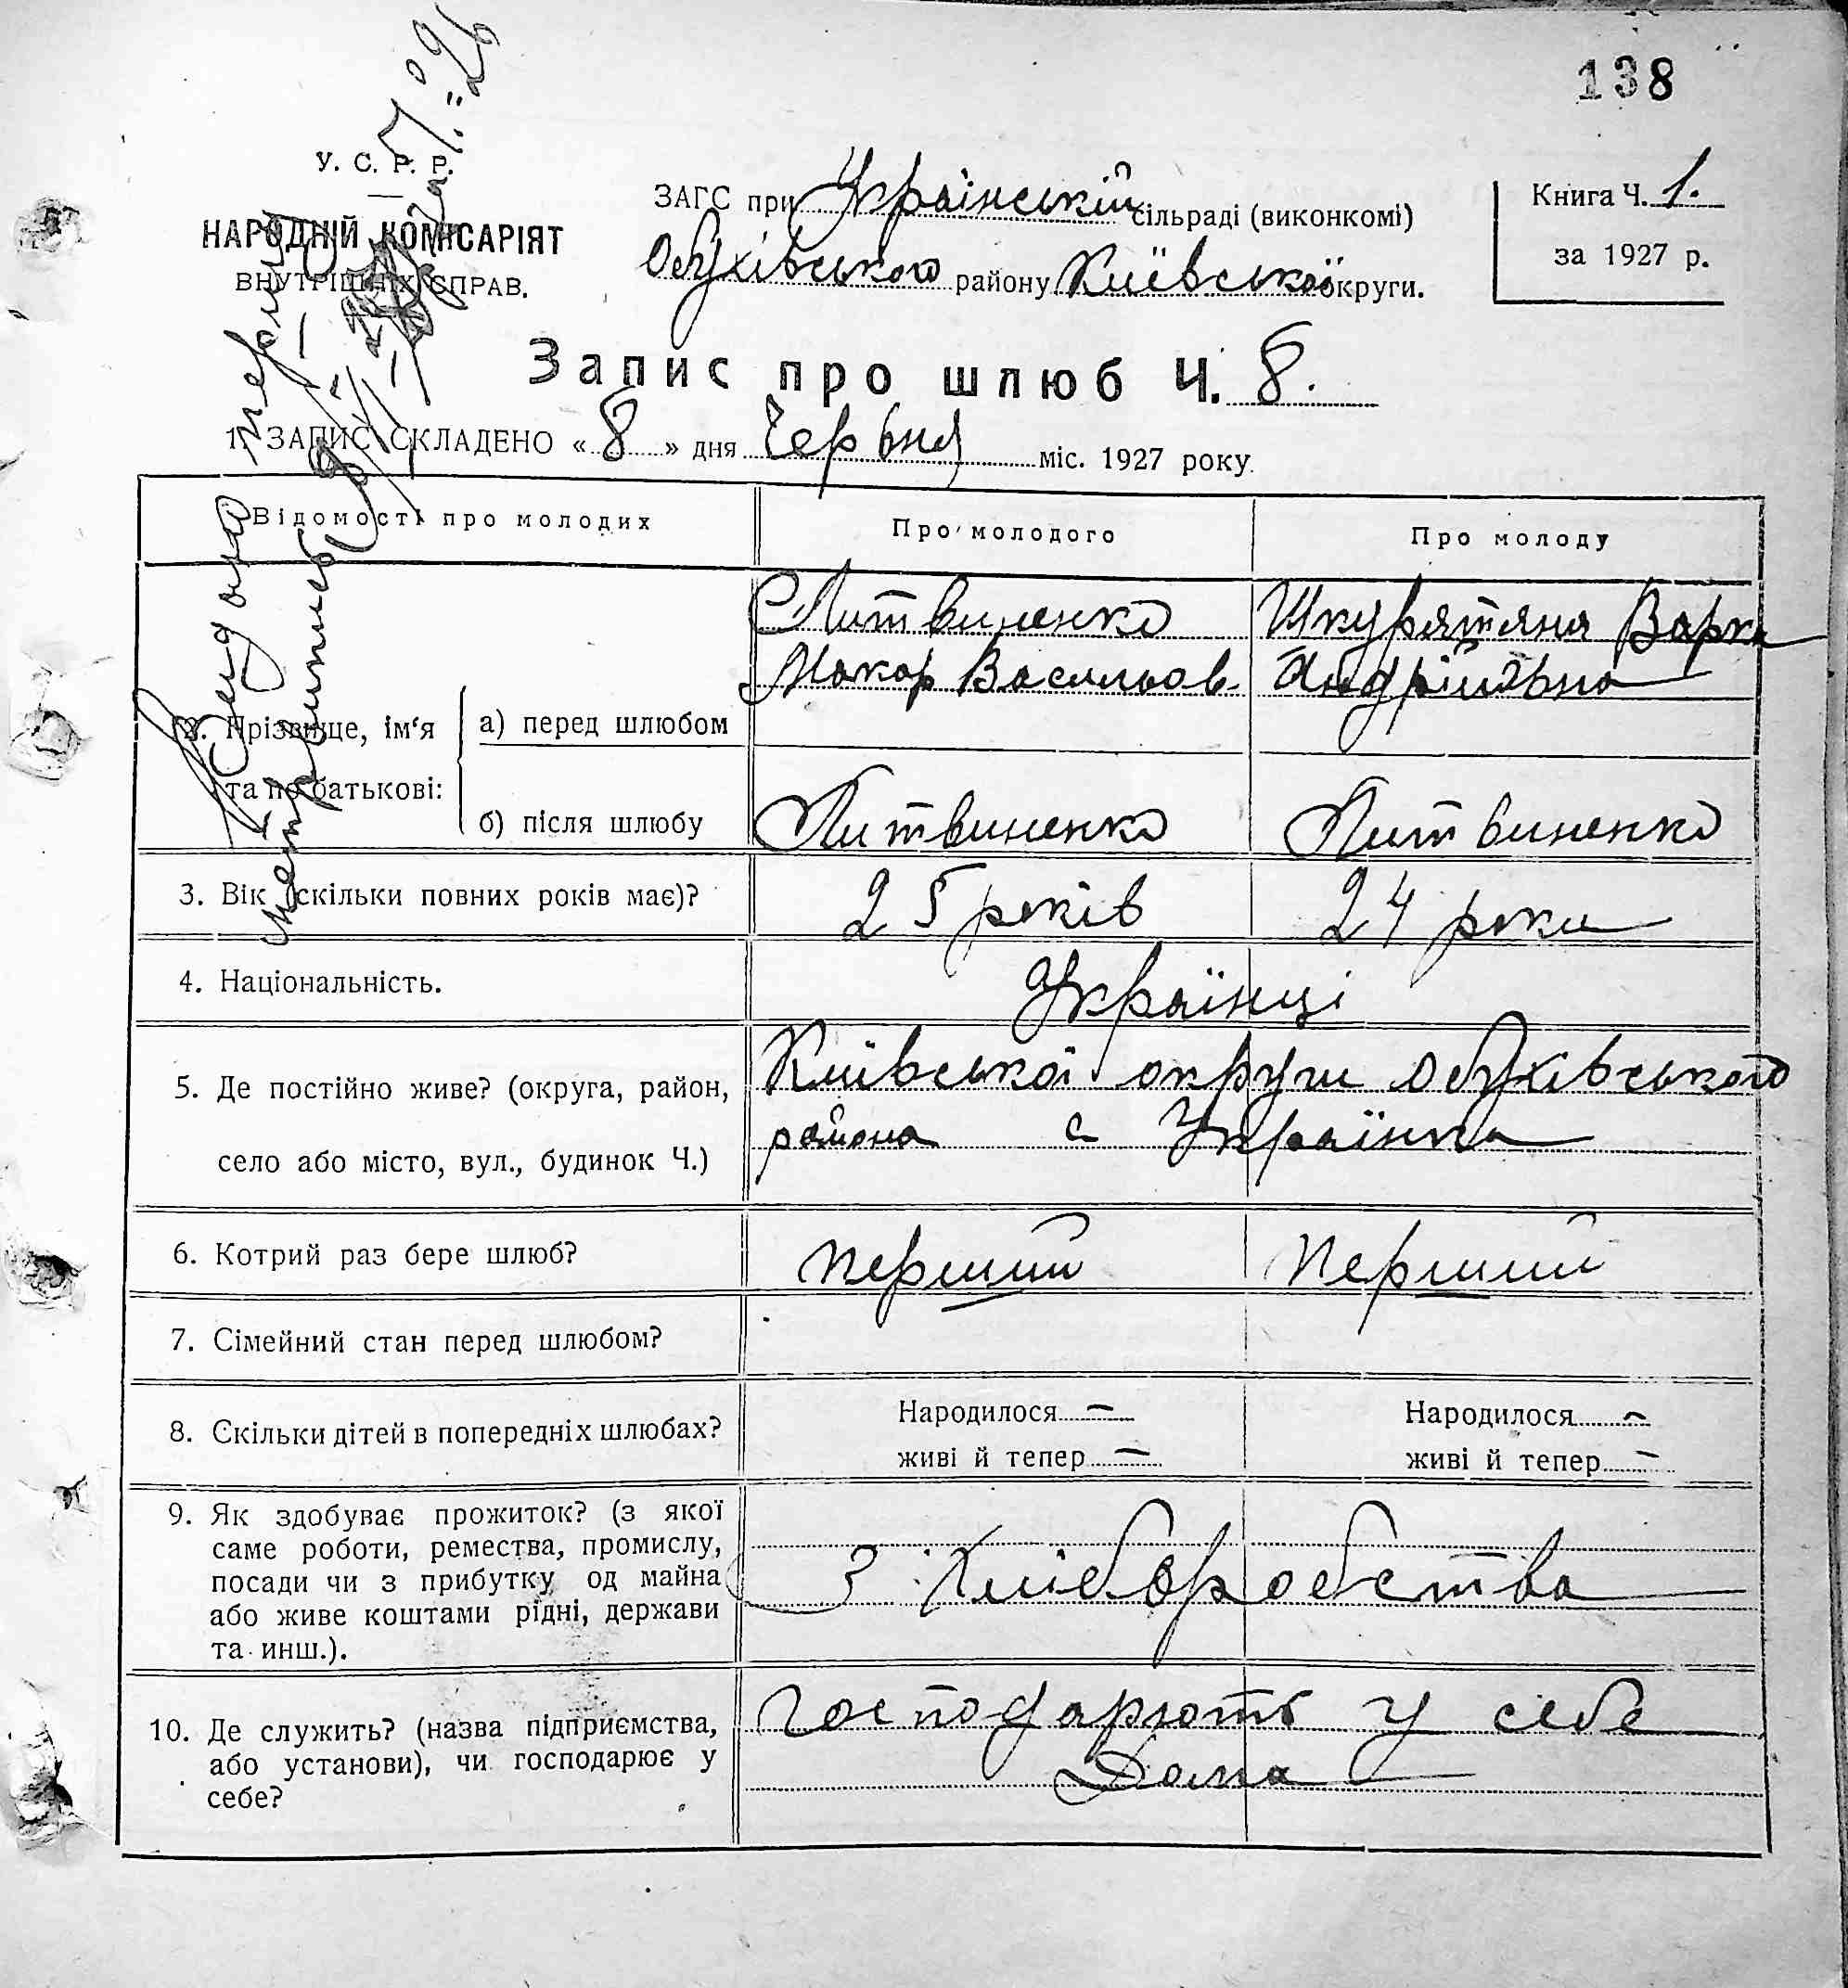 138
У. С. Р. Р.
НАРОДНІЙ КОМІСАРІЯТ
ВНУТРІШНІХ СПРАВ.
ЗАГС при Українській сільраді (виконкомі)
Обухівського району Київської округи.
Книга Ч. 1.
за 1927 р.
Запис про шлюб Ч. 8.
1. ЗАПИС СКЛАДЕНО « 8 » дня Червня міс. 1927 року.
Видано
Відомості про молодих
Про молодого
Про молоду
2. Прізвище, ім'я та по батькові:
а) перед шлюбом
Литвиненко
Макар Васильов.
Шкурятяня Варка
Андрійовна
б) після шлюбу
Литвиненко
Литвиненко
3. Вік (скільки повних років має)?
25 років
24 роки
4. Національність.
Українці
5. Де постійно живе? (округа, район,
село або місто, вул., будинок Ч.)
Київської округи Обухівського
района с Українка
6. Котрий раз бере шлюб?
перший
перший
7. Сімейний стан перед шлюбом?
8. Скільки дітей в попередніх шлюбах?
Народилося —
живі й тепер —
Народилося —
живі й тепер —
9. Як здобуває прожиток? (з якої
саме роботи, ремества, промислу,
посади чи з прибутку од майна
або живе коштами рідні, держави
та инш.).
З хліборобства
10. Де служить? (назва підприємства,
або установи), чи господарює у
себе?
господарюють у себе
Дома